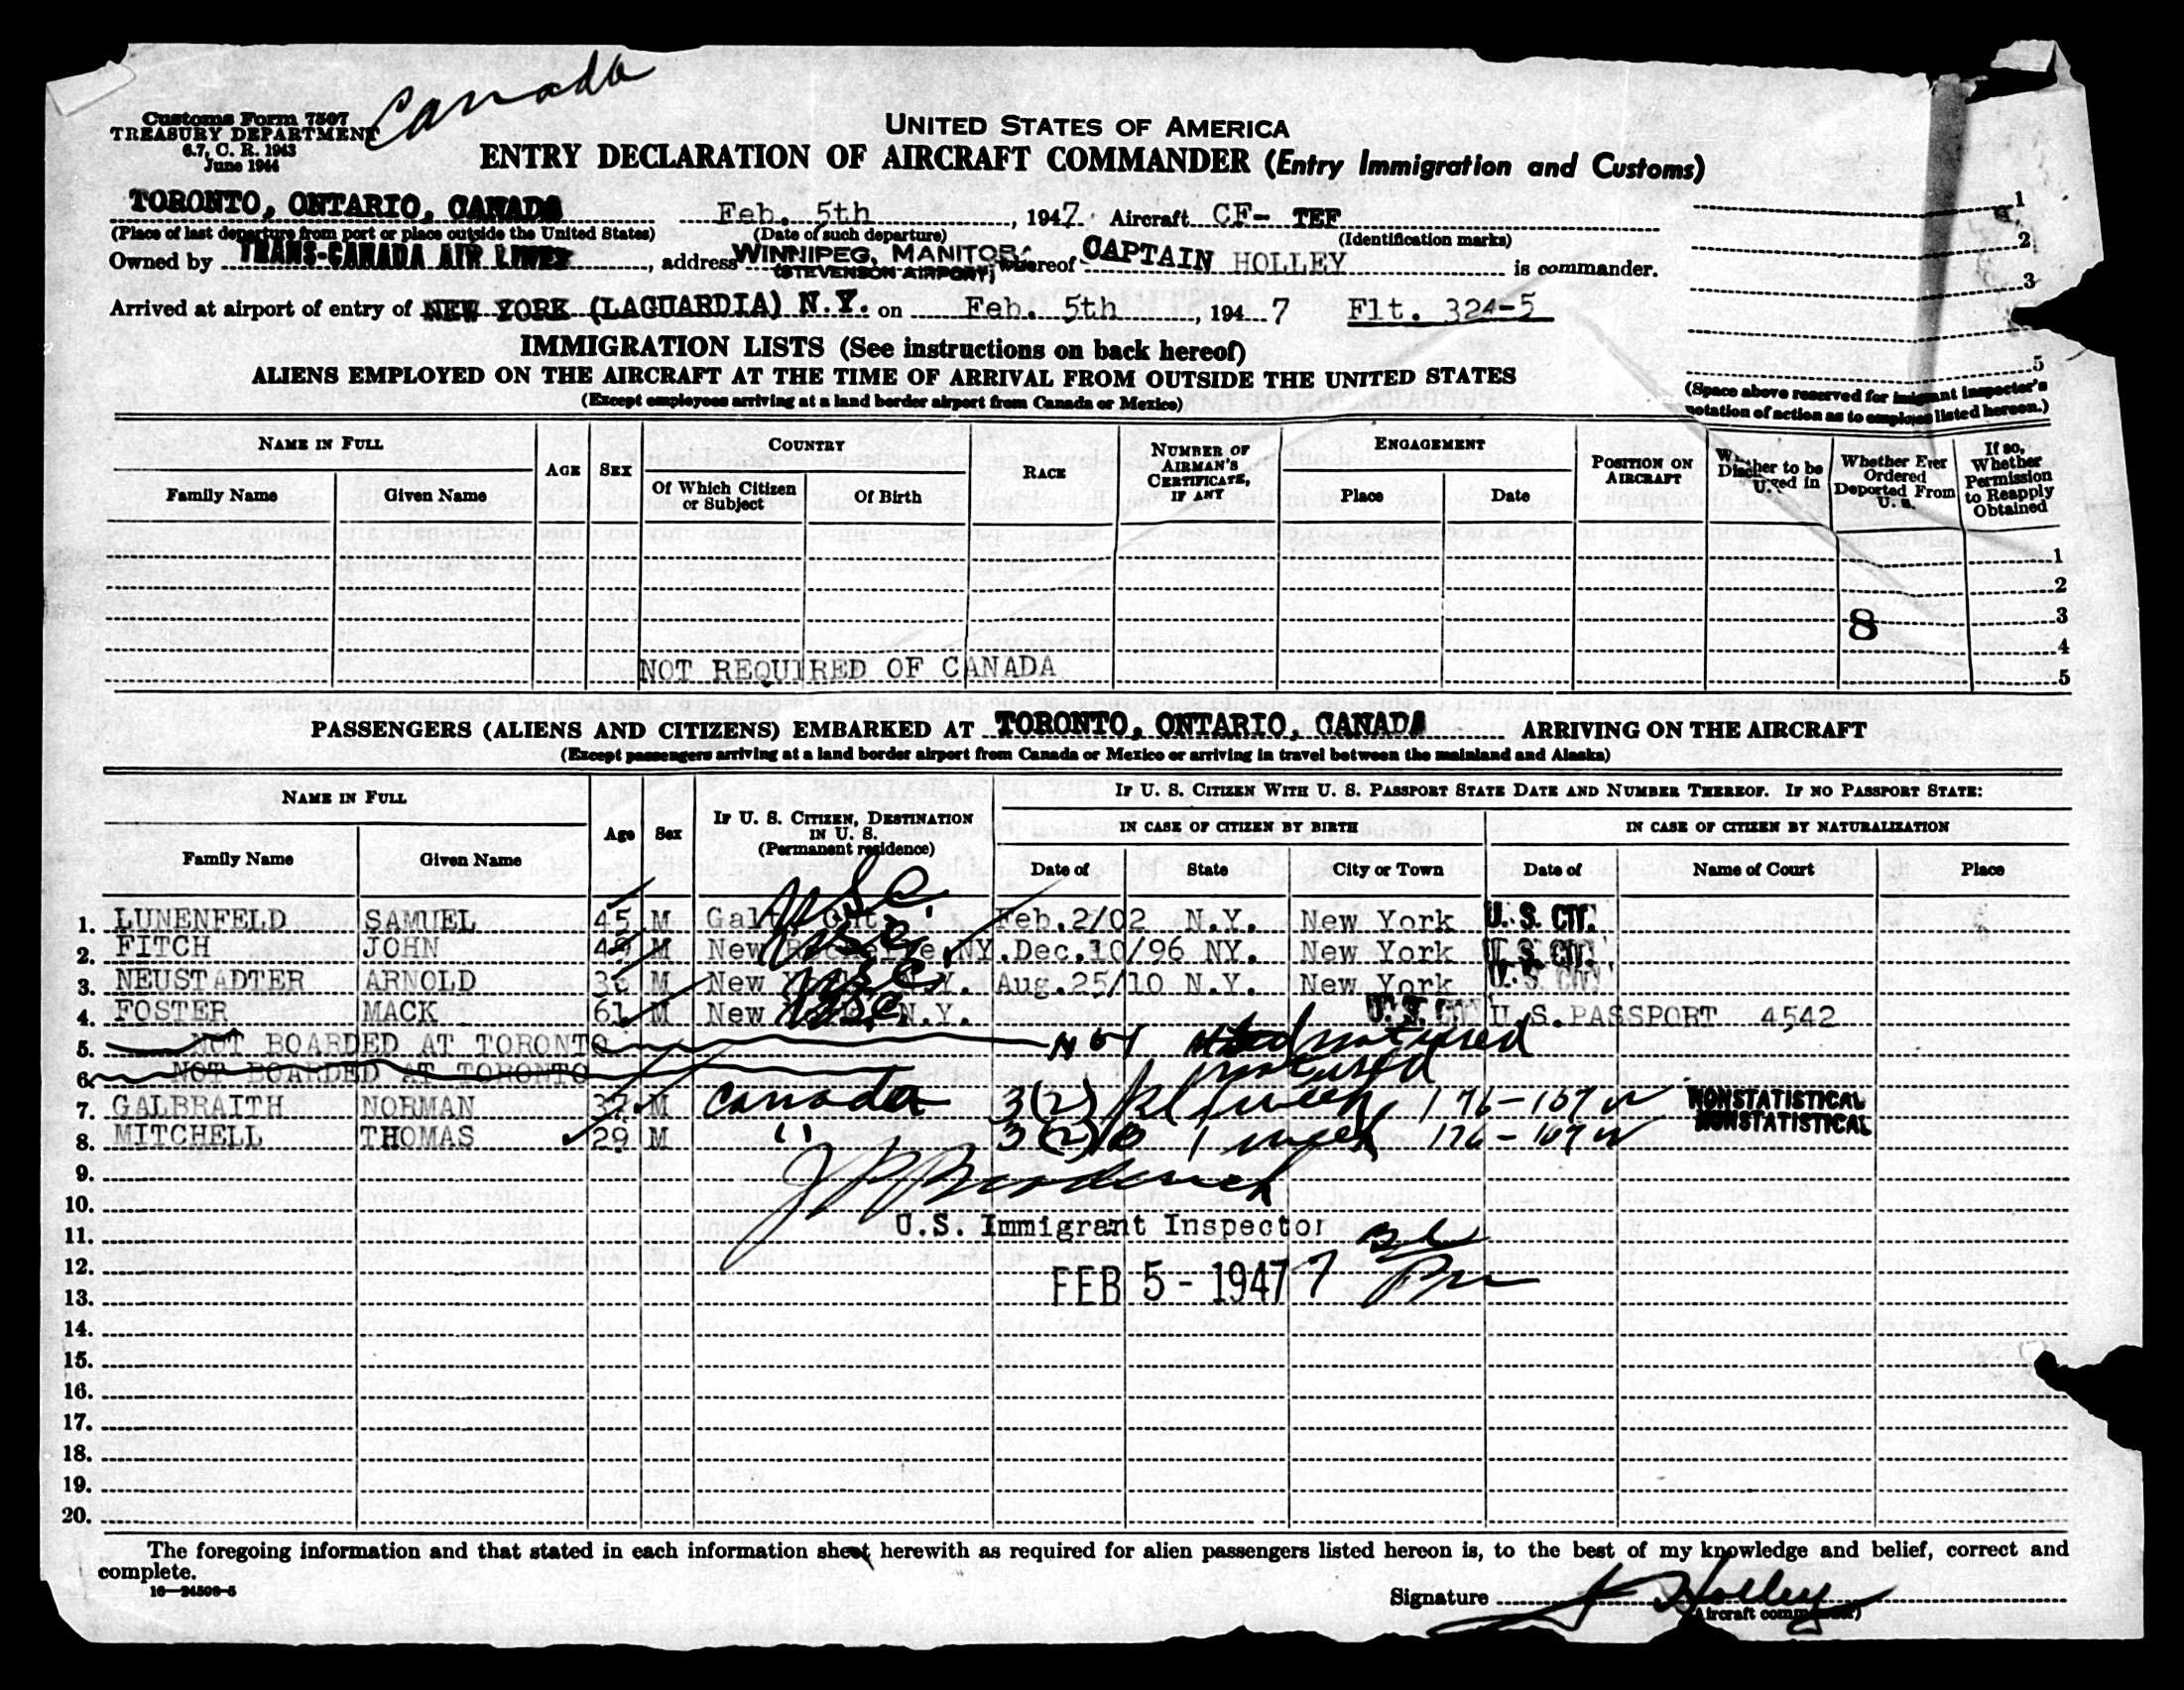 Canada
Customs Form 7507
TREASURY DEPARTMENT
6.7, C. R. 1943
June 1944
UNITED STATES OF AMERICA
ENTRY DECLARATION OF AIRCRAFT COMMANDER (Entry Immigration and Customs)
TORONTO, ONTARIO, CANADA Feb. 5th, 1947 Aircraft CF- TEF
(Place of last departure from port or place outside the United States) (Date of such departure) (Identification marks)
Owned by TRANS-CANADA AIR LINES, address WINNIPEG, MANITOBA (STEVENSON AIRPORT) whereof CAPTAIN HOLLEY is commander.
Arrived at airport of entry of NEW YORK (LAGUARDIA) N.Y. on Feb. 5th, 1947 Flt. 324-5
1
2
3
5
(Space above reserved for immigrant inspector's notation of action as to employees listed hereon.)
IMMIGRATION LISTS (See instructions on back hereof)
ALIENS EMPLOYED ON THE AIRCRAFT AT THE TIME OF ARRIVAL FROM OUTSIDE THE UNITED STATES
(Except employees arriving at a land border airport from Canada or Mexico)
NAME IN FULL AGE SEX COUNTRY RACE NUMBER OF AIRMAN'S CERTIFICATE, IF ANY ENGAGEMENT POSITION ON AIRCRAFT Whether to be Discharged in U.S. Whether Ever Ordered Deported From U. S. If so, Whether Permission to Reapply Obtained
Family Name Given Name Of Which Citizen or Subject Of Birth Place Date
1
2
8 3
4
NOT REQUIRED OF CANADA 5
PASSENGERS (ALIENS AND CITIZENS) EMBARKED AT TORONTO, ONTARIO, CANADA ARRIVING ON THE AIRCRAFT
(Except passengers arriving at a land border airport from Canada or Mexico or arriving in travel between the mainland and Alaska)
NAME IN FULL Age Sex IF U. S. CITIZEN, DESTINATION IN U. S. (Permanent residence) IF U. S. CITIZEN WITH U. S. PASSPORT STATE DATE AND NUMBER THEREOF. IF NO PASSPORT STATE:
IN CASE OF CITIZEN BY BIRTH IN CASE OF CITIZEN BY NATURALIZATION
Family Name Given Name Date of State City or Town Date of Name of Court Place
1. LUNENFELD SAMUEL 45 M Galt, Ont. USC Feb.2/02 N.Y. New York U.S. CIT.
2. FITCH JOHN M New Rochelle NY. USC Dec.10/96 NY. New York U.S. CIT.
3. NEUSTADTER ARNOLD 36 M New York N.Y. USC Aug.25/10 N.Y. New York U.S. CIT.
4. FOSTER MACK 61 M New York, N.Y. USC U.S. CIT U.S.PASSPORT 4542
5. NOT BOARDED AT TORONTO Not manifested
6. NOT BOARDED AT TORONTO
7. GALBRAITH NORMAN 37 M Canada 3(2) 1 week 176-167 NONSTATISTICAL
8. MITCHELL THOMAS 29 M " 3(2) 1 week 176-167 NONSTATISTICAL
9.
10.
11. U.S. Immigrant Inspector
12.
FEB 5 - 1947 7
13.
14.
15.
16.
17.
18.
19.
20.
The foregoing information and that stated in each information sheet herewith as required for alien passengers listed hereon is, to the best of my knowledge and belief, correct and
complete.
16—24508-5
Signature Holley
(Aircraft commander)